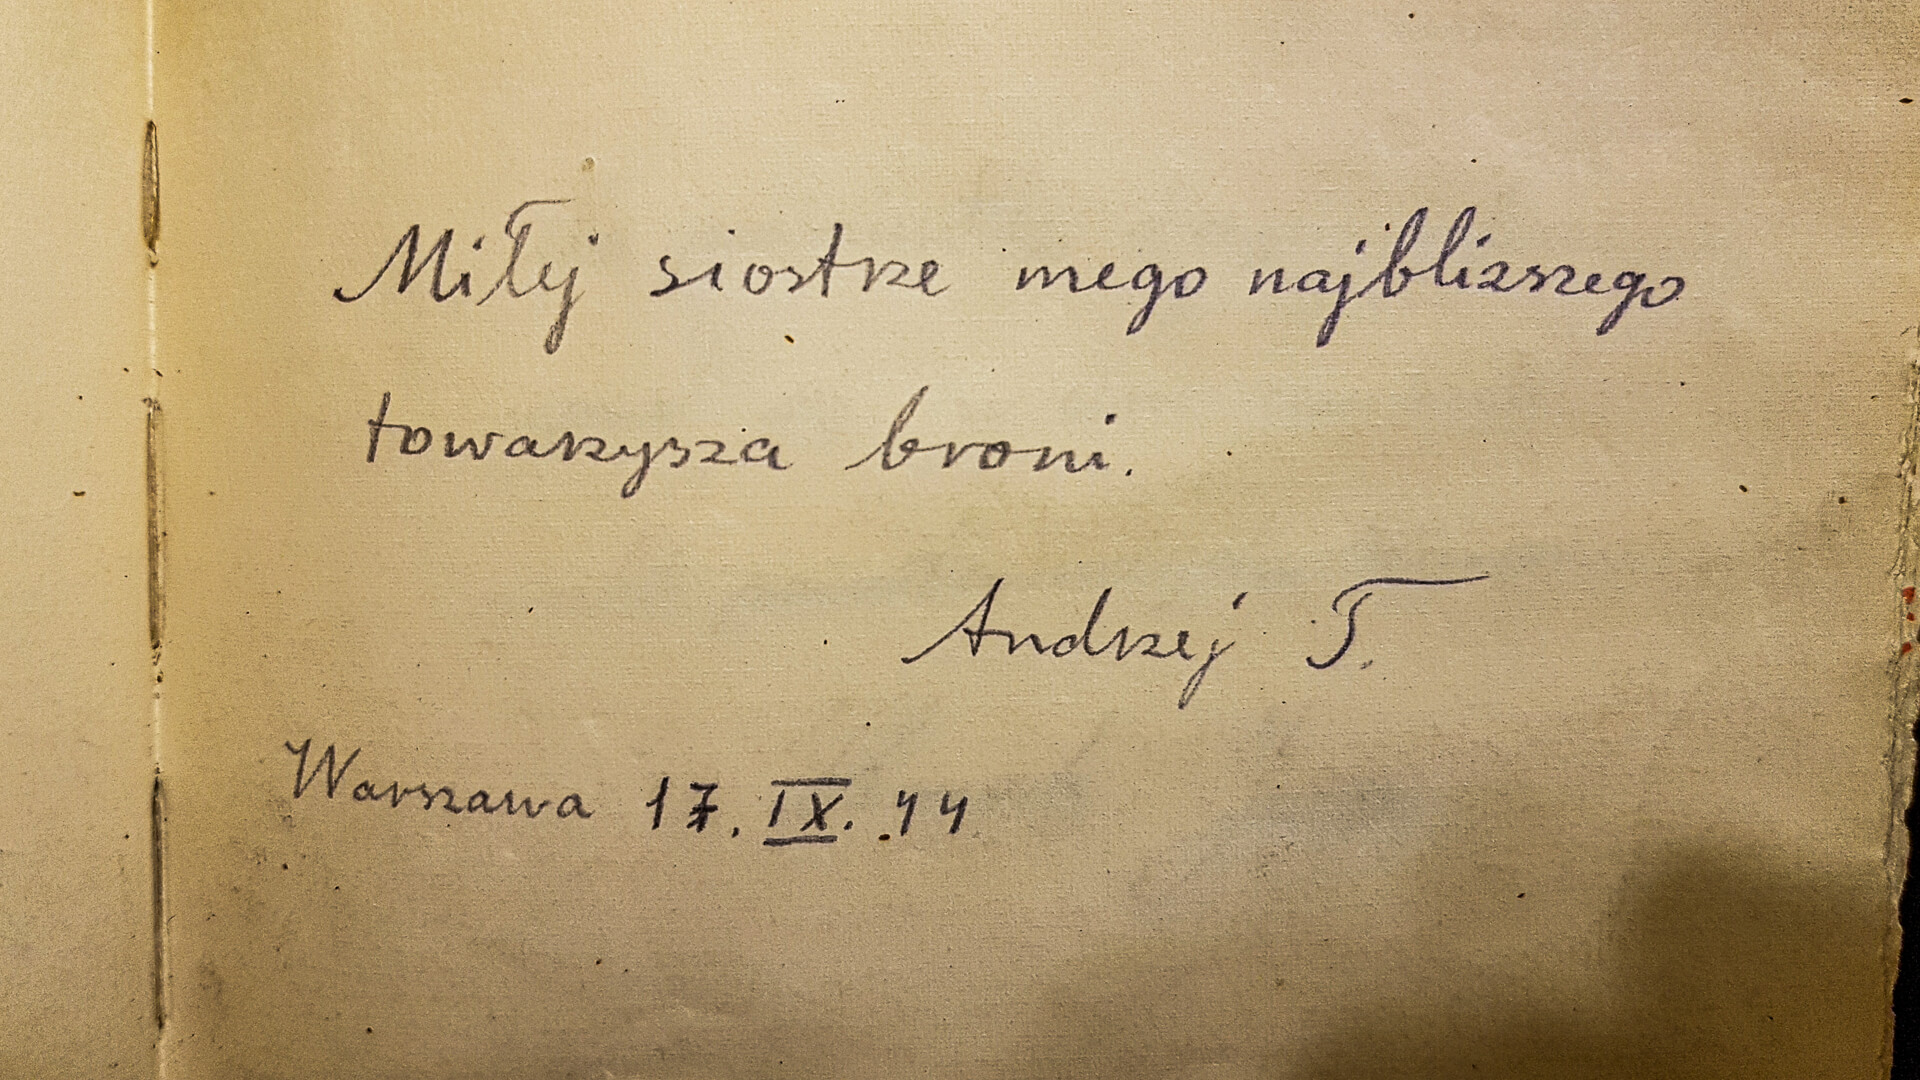 Miłej siostrze mego najbliższego
towarzysza broni.
Andrzej T.
Warszawa 17. IX. 44